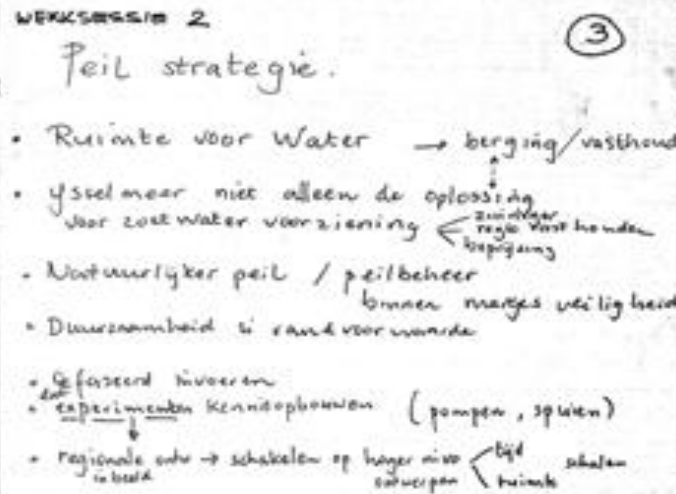 WERKSESSIE 2
3
Peil strategie.
• Ruimte voor Water → berging/vasthoud
• Ysselmeer niet alleen de oplossing
voor zoetwater voorziening < zuiniger
regio vasthouden
beprijzing
• Natuurlijker peil / peilbeheer
binnen marges veiligheid
• Duurzaamheid is randvoorwaarde
• Gefaseerd invoeren
• experimenten kennisopbouwen (pompen, spuien)
• regionale → schakelen op hoger nivo < tijd schalen
in beeld ontwerpen ruimte